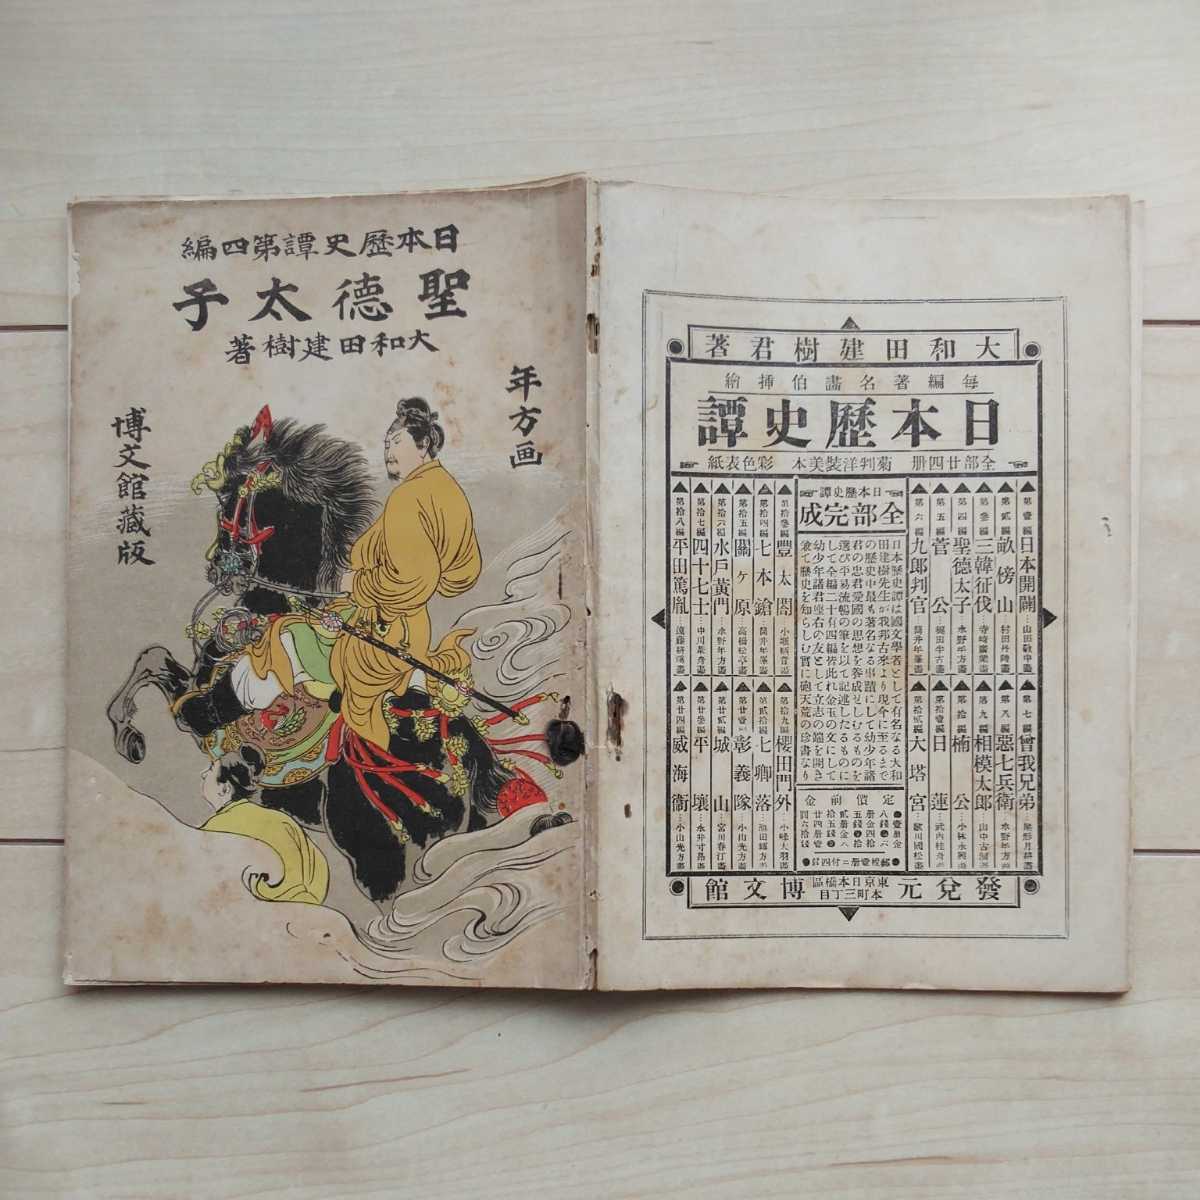 日本歴史譚第四編
聖德太子
大和田建樹著
年方画
博文館藏版
大和田建樹君著
每編著名畵伯挿繪
日本歴史譚
全部廿四册 菊判洋裝美本 彩色表紙
第壹編 日本開闢
第貳編 畝傍山 村田丹陵畫
第參編 三韓征伐 寺崎廣業畫
第四編 聖德太子 水野年方畫
第五編 菅公 梶田半古畫
第六編 九郎判官 筒井年峯畫
第七編 曾我兄弟 尾形月耕畫
第八編 惡七兵衛 水野年方畫
第九編 相模太郎 山中古洞畫
第拾編 楠公 小林永興畫
第拾壹編 日蓮 武内桂舟畫
第拾貳編 大塔宮 歌川國松畫
日本歴史譚
全部完成
日本歴史譚は國文學者として有名なる大和
田建樹先生が我邦古來より現今に至るまで
の歴史中最も著名なる事蹟にして幼少年諸
君の忠君愛國の思想を養成せしむるものを
選び平易流暢の筆を以て記述したるものに
して全編二十有四編皆此れ金玉の文にして
幼少年諸君座右の友として立志の端を開き
兼て歴史を知らしむ實に砲天荒の珍書なり
定價前金
壹册金
八錢
六册金四拾
五錢
拾貳册金八
拾五錢
廿四册壹
圓六拾錢
郵稅壹册ニ付四錢
第拾參編 豐太閤
第拾四編 七本鎗 筒井年峯畫
第拾五編 關ヶ原 高橋松亭畫
第拾六編 水戶黃門 水野年方畫
第拾七編 四十七士 中川葦舟畫
第拾八編 平田篤胤 遠藤耕溪畫
第拾九編 櫻田門外 小峰大羽畫
第貳拾編 七卿落 池田輝方畫
第廿壹編 彰義隊 小山光方畫
第廿貳編 城山 宮川春汀畫
第廿參編 平壤 永井寸昂畫
第廿四編 威海衞 小山光方畫
發兌元 東京日本橋區本町三丁目 博文館